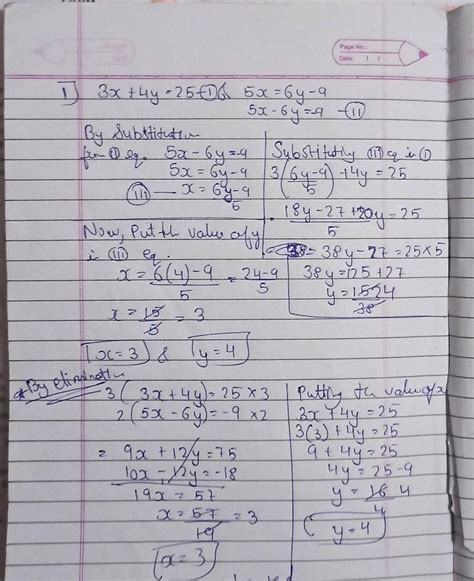 Page No.:
Date: / /
1) 3x + 4y = 25 - (I) & 5x = 6y - 9
5x - 6y = -9 - (II)
By Substitution
from (II) eq. 5x - 6y = -9
5x = 6y - 9
(III) — x = 6y - 9 / 5
Substituting (III) eq in (I)
3(6y - 9 / 5) + 4y = 25
18y - 27 + 20y / 5 = 25
= 38y - 27 = 25 × 5
38y = 125 + 27
y = 152 4 / 38
Now, Put the value of y
in (III) eq.
x = 6(4) - 9 / 5 = 24 - 9 / 5
x = 15 / 5 = 3
x = 3 & y = 4
* By elimination
3(3x + 4y) = 25 × 3
2(5x - 6y) = -9 × 2
= 9x + 12y = 75
10x - 12y = -18
19x = 57
x = 57 / 19 = 3
x = 3
Putting the value of x
3x + 4y = 25
3(3) + 4y = 25
9 + 4y = 25
4y = 25 - 9
y = 16 4 / 4
y = 4